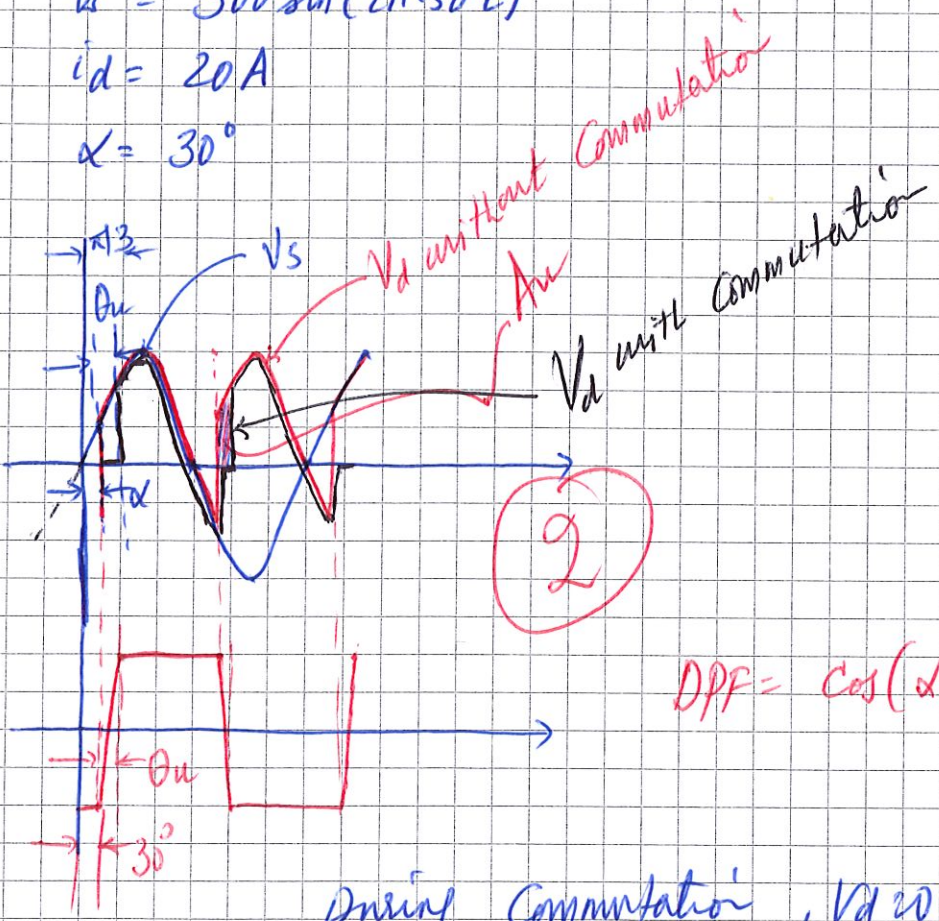 300 sin(2π·50t)
id = 20A
α = 30°
π/3
θu
Vs
Vd without Commutation
Au
Vd with Commutation
α
2
DPF = Cos(α
θu
30°
During Commutation, Vd=0